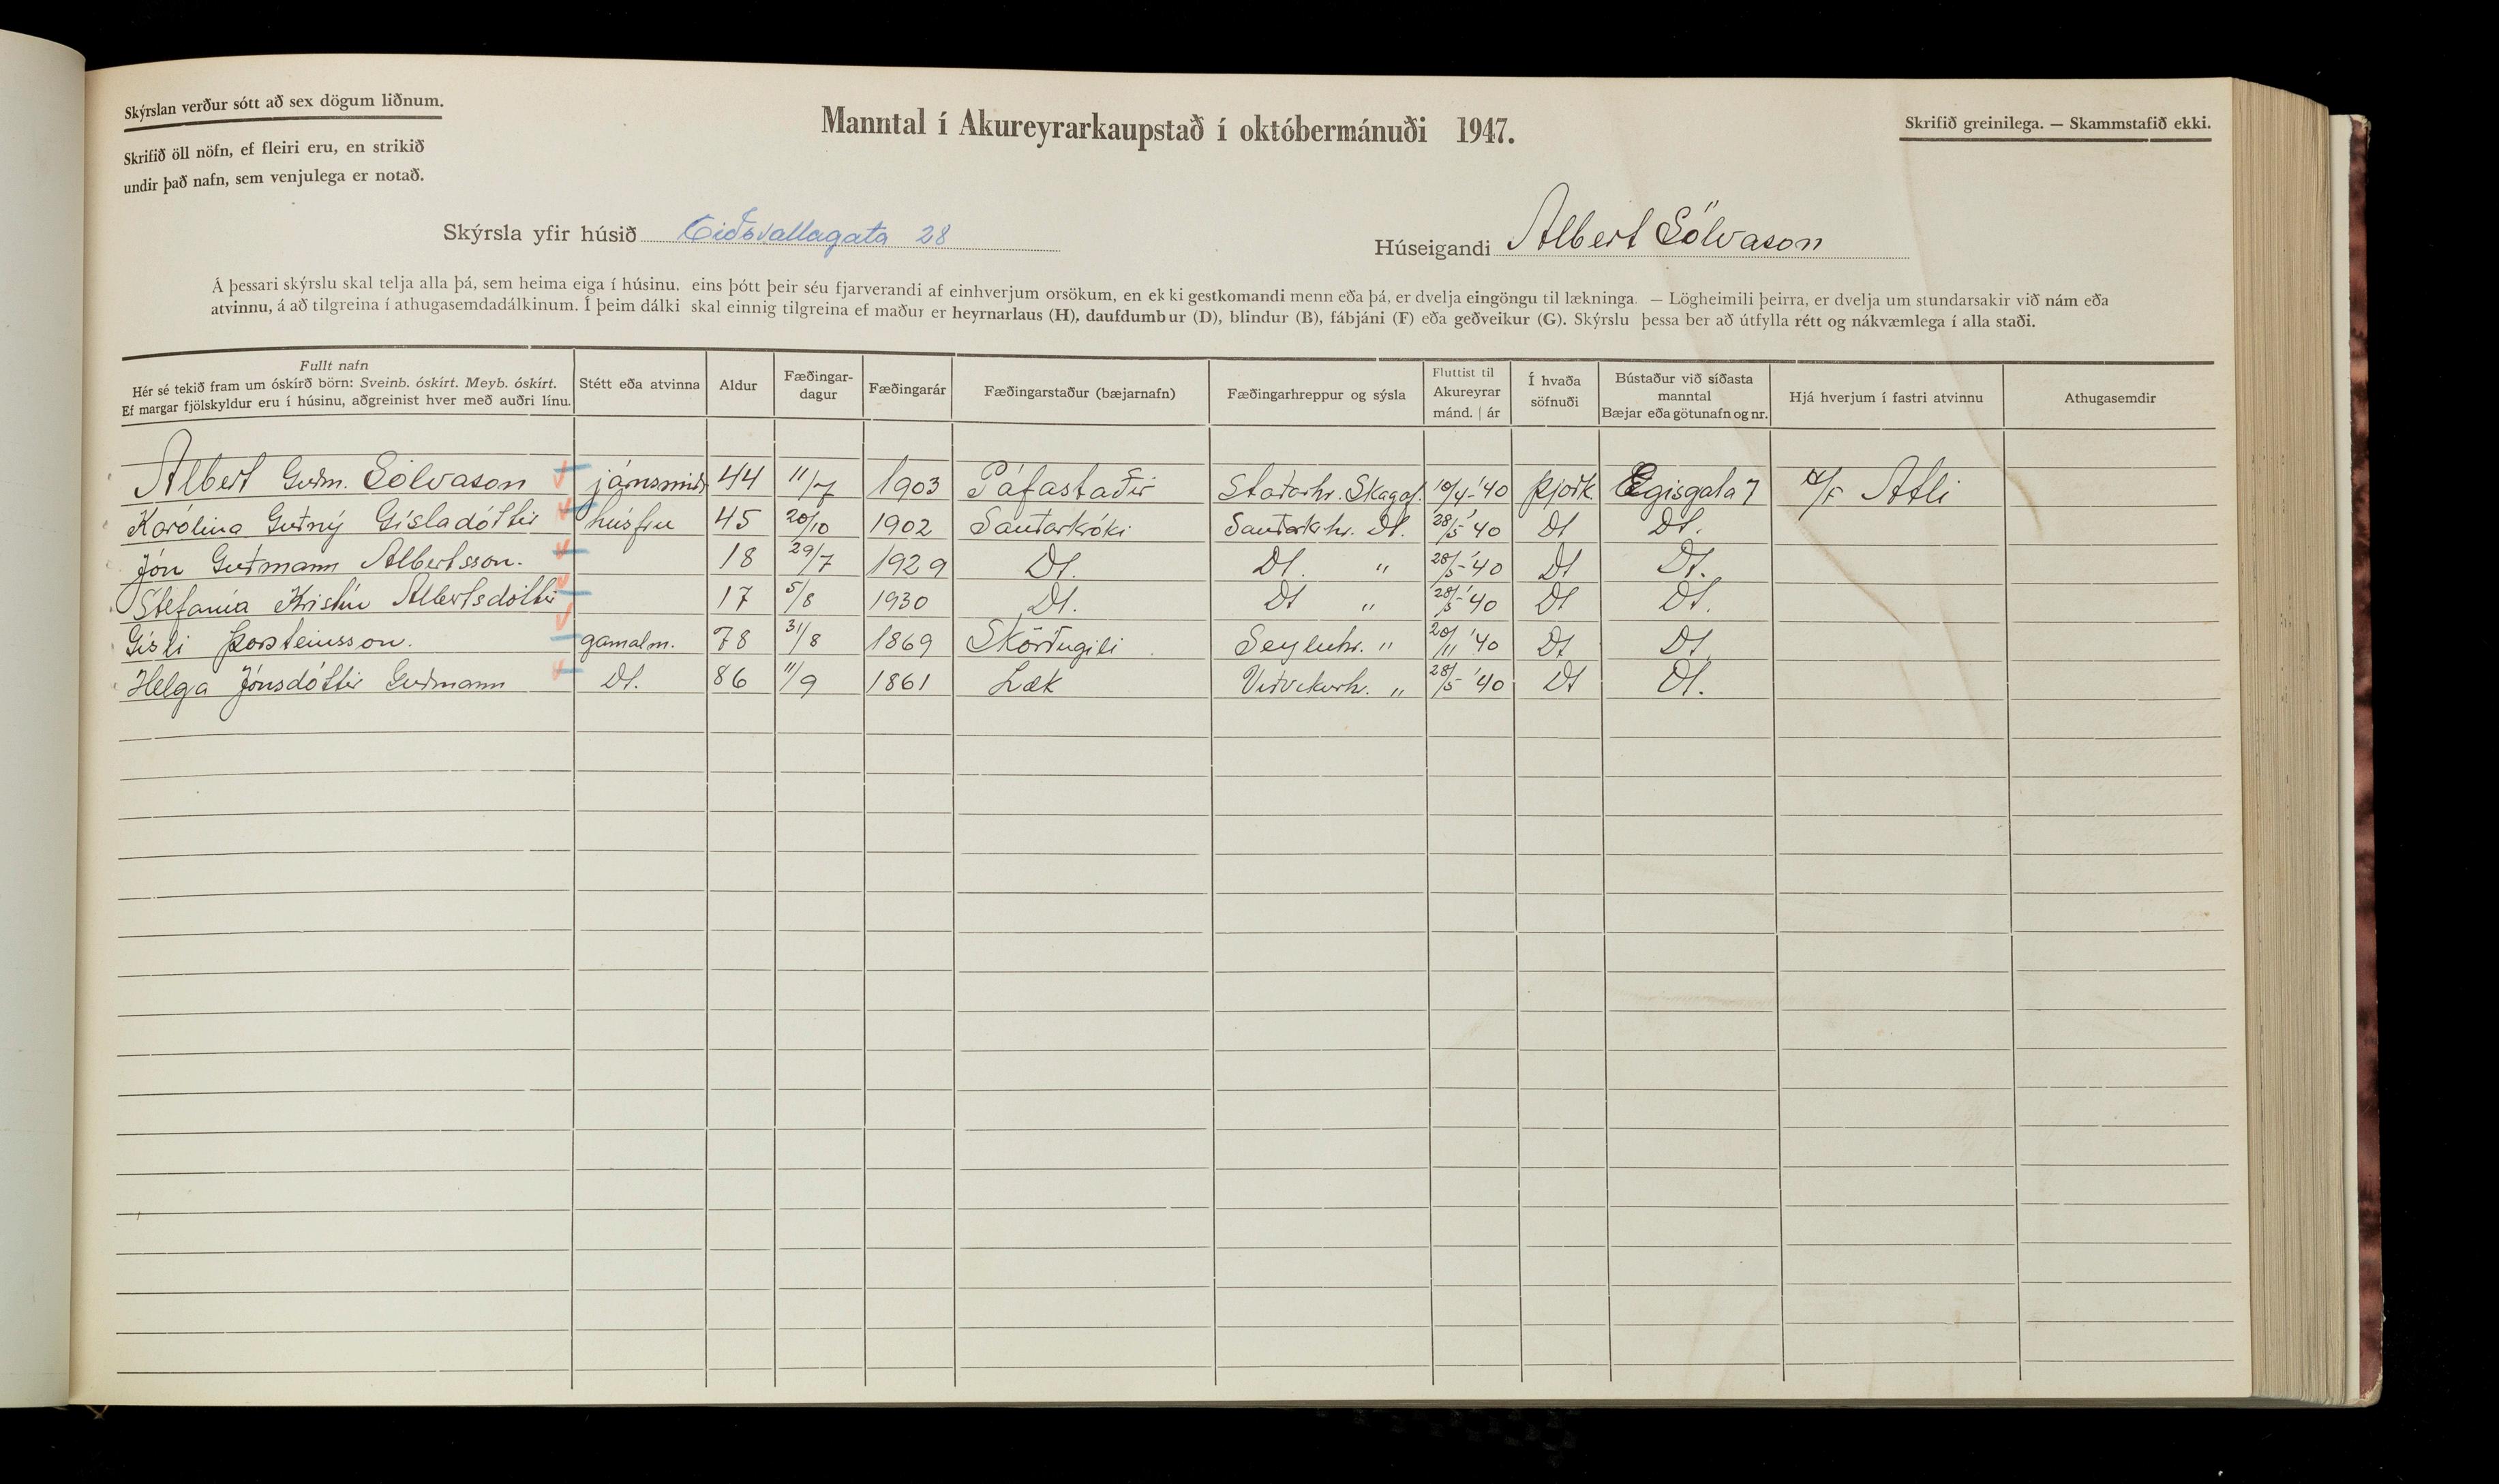 Skýrslan verður sótt að sex dögum liðnum.
Skrifið öll nöfn, ef fleiri eru, en strikið
undir það nafn, sem venjulega er notað.
Manntal í Akureyrarkaupstað í októbermánuði 1947.
Skrifið greinilega. — Skammstafið ekki.
Skýrsla yfir húsið Eiðsvallagata 28
Húseigandi Albert Sölvason
Á þessari skýrslu skal telja alla þá, sem heima eiga í húsinu, eins þótt þeir séu fjarverandi af einhverjum orsökum, en ekki gestkomandi menn eða þá, er dvelja eingöngu til lækninga. — Lögheimili þeirra, er dvelja um stundarsakir við nám eða
atvinnu, á að tilgreina í athugasemdadálkinum. Í þeim dálki skal einnig tilgreina ef maður er heyrnarlaus (H), daufdumbur (D), blindur (B), fábjáni (F) eða geðveikur (G). Skýrslu þessa ber að útfylla rétt og nákvæmlega í alla staði.
Fullt nafn
Hér sé tekið fram um óskírð börn: Sveinb. óskírt. Meyb. óskírt.
Ef margar fjölskyldur eru í húsinu, aðgreinist hver með auðri línu.
Stétt eða atvinna
Aldur
Fæðingar-
dagur
Fæðingarár
Fæðingarstaður (bæjarnafn)
Fæðingarhreppur og sýsla
Fluttist til
Akureyrar
mánd. | ár
Í hvaða
söfnuði
Bústaður við síðasta
manntal
Bæjar eða götunafn og nr.
Hjá hverjum í fastri atvinnu
Athugasemdir
Albert Guðm. Sölvason járnsmiðr 44 11/7 1903 Páfastaðir Staðarhr. Skagaf. 10/4-'40 Þjóðk. Ægisgata 7 H/F Atli
Karólína Guðný Gísladóttir húsfrú 45 20/10 1902 Sauðárkróki Sauðárkhr. Dt. 28/5-'40 Dt Dt.
Jón Guðmann Albertsson. 18 29/7 1929 Dt. Dt. " 28/5-'40 Dt Dt.
Stefanía Kristín Albertsdóttir 17 5/8 1930 Dt. Dt " 28/5-'40 Dt Dt.
Gísli Þorsteinsson. gamalm. 78 31/8 1869 Skörðugili Seyluhr. " 20/11 '40 Dt Dt.
Helga Jónsdóttir Guðmann Dt. 86 11/9 1861 Læk Viðvíkurhr. " 28/5 '40 Dt Dt.